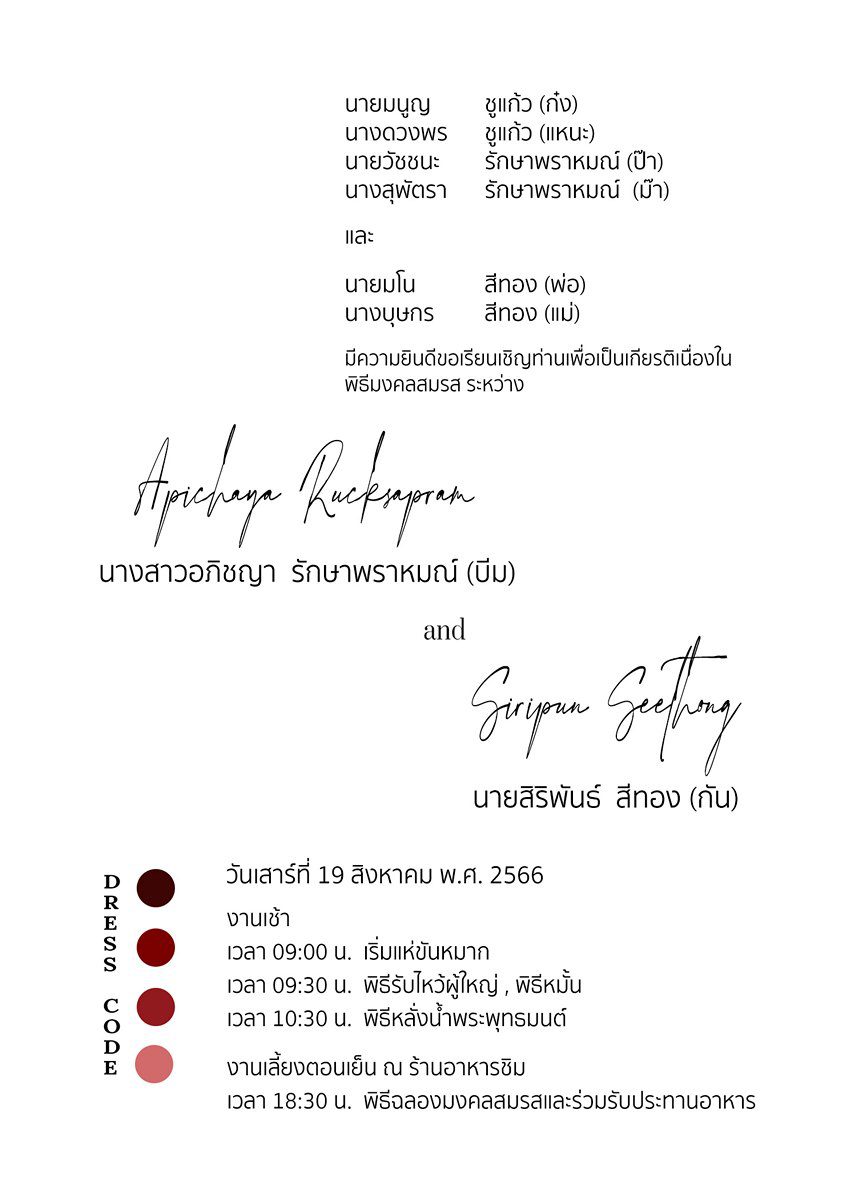 นายมนูญ ชูแก้ว (ก๋ง)
นางดวงพร ชูแก้ว (แหนะ)
นายวัชชนะ รักษาพราหมณ์ (ป๊า)
นางสุพัตรา รักษาพราหมณ์ (ม๊า)
และ
นายมโน สีทอง (พ่อ)
นางบุษกร สีทอง (แม่)
มีความยินดีขอเรียนเชิญท่านเพื่อเป็นเกียรติเนื่องใน
พิธีมงคลสมรส ระหว่าง
Apichaya Rucksapram
นางสาวอภิชญา รักษาพราหมณ์ (บีม)
and
Siripun Seethong
นายสิริพันธ์ สีทอง (กัน)
DRESS CODE
วันเสาร์ที่ 19 สิงหาคม พ.ศ. 2566
งานเช้า
เวลา 09:00 น. เริ่มแห่ขันหมาก
เวลา 09:30 น. พิธีรับไหว้ผู้ใหญ่ , พิธีหมั้น
เวลา 10:30 น. พิธีหลั่งน้ำพระพุทธมนต์
งานเลี้ยงตอนเย็น ณ ร้านอาหารชิม
เวลา 18:30 น. พิธีฉลองมงคลสมรสและร่วมรับประทานอาหาร